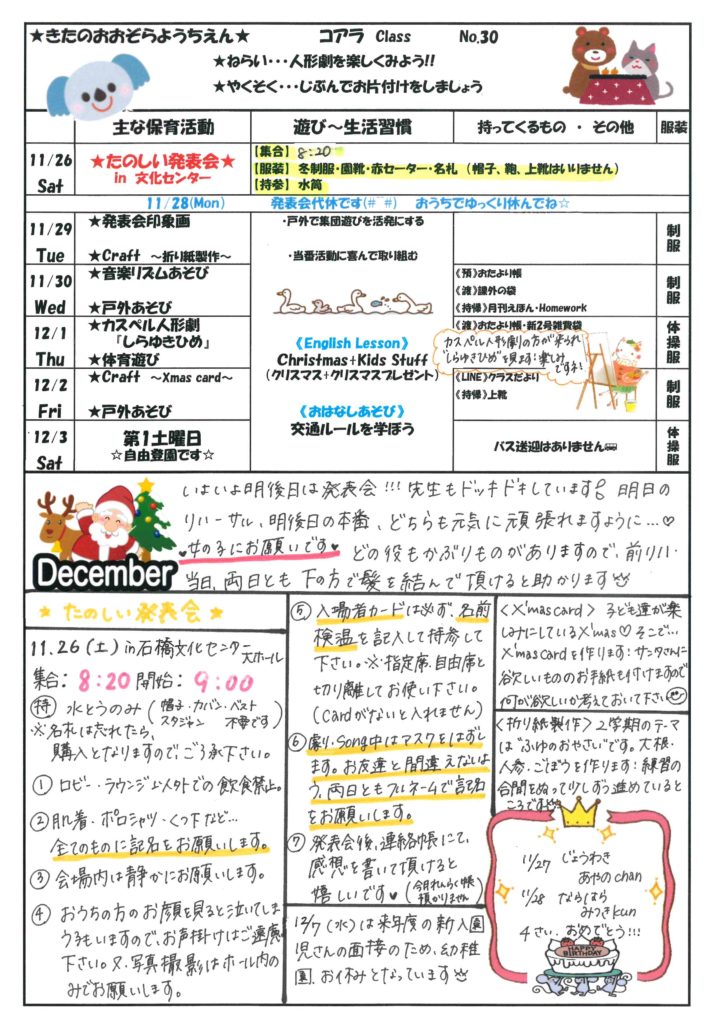 ★きたのおおぞらようちえん★ コアラ Class No.30
★ねらい・・・人形劇を楽しくみよう!!
★やくそく・・・じぶんでお片付けをしましょう
主な保育活動 遊び～生活習慣 持ってくるもの ・ その他 服装
11/26 Sat
★たのしい発表会★
in 文化センター
【集合】 8:20
【服装】 冬制服・園靴・赤セーター・名札 (帽子、鞄、上靴はいりません)
【持参】 水筒
11/28(Mon) 発表会代休です(#^^#) おうちでゆっくり休んでね☆
11/29 Tue
★発表会印象画
★Craft ～折り紙製作～
・戸外で集団遊びを活発にする
・当番活動に喜んで取り組む
制服
11/30 Wed
★音楽リズムあそび
★戸外あそび
《預》おたより帳
《渡》課外の袋
《持帰》月刊えほん・Homework
制服
12/1 Thu
★カスペル人形劇
「しらゆきひめ」
★体育遊び
《English Lesson》
Christmas+Kids Stuff
(クリスマス+クリスマスプレゼント)
《渡》おたより帳・新2号雑費袋
カスペル人形劇の方が来られ
"しらゆきひめ"を見ます:楽しみ
ですネ!
体操服
12/2 Fri
★Craft ～Xmas card～
★戸外あそび
《おはなしあそび》
交通ルールを学ぼう
《LINE》クラスだより
《持帰》上靴
制服
12/3 Sat
第1土曜日
☆自由登園です☆
バス送迎はありません
体操服
December
いよいよ明後日は発表会!!! 先生もドッキドキしています 明日の
リハーサル、明後日の本番、どちらも元気に頑張れますように…♡
♥女の子にお願いです♥ どの役もかぶりものがありますので、前リハ・
当日、両日とも 下の方で髪を結んで頂けると助かります
★ たのしい発表会 ★
11.26(土) in石橋文化センター
大ホール
集合: 8:20 開始: 9:00
持 水とうのみ (帽子・カバン・ベスト
スタジャン 不要です)
※名札は忘れたら、
購入となりますので、ご了承下さい。
① ロビー・ラウンジ以外での飲食禁止。
② 肌着・ポロシャツ・くつ下など…
全てのものに記名をお願いします。
③ 会場内は静かにお願いします。
④ おうちの方のお顔を見ると泣いてしま
う子もいますので、お声掛けはご遠慮
下さい。又、写真撮影はホール内の
みでお願いします。
⑤ 入場者カードは必ず、名前
検温を記入して持参して
下さい。※指定席、自由席と
切り離してお使い下さい。
(Cardがないと入れません)
⑥ 劇・Song中はマスクをはずし
ます。お友達と間違えないよ
う、両日ともフルネームで記名
をお願いします。
⑦ 発表会後、連絡帳にて、
感想を書いて頂けると
嬉しいです♥ (今日れんらく帳
預かりません)
12/7(水)は来年度の新入園
児さんの面接のため、幼稚
園、お休みとなっています
<X'mas card> 子ども達が楽
しみにしているX'mas♡ そこで…
X'mas cardを作ります:サンタさんに
欲しいもののお手紙も付けますので
何が欲しいか考えておいて下さい
<折り紙製作> 2学期のテーマ
は"ふゆのおやさい"です。大根・
人参・ごぼうを作ります:練習の
合間をぬって少しずつ進めていると
ころです
11/27 じょうわき
あやの chan
11/28 ならはら
みつき kun
4さい、おめでとう!!!
HAPPY
BIRTHDAY